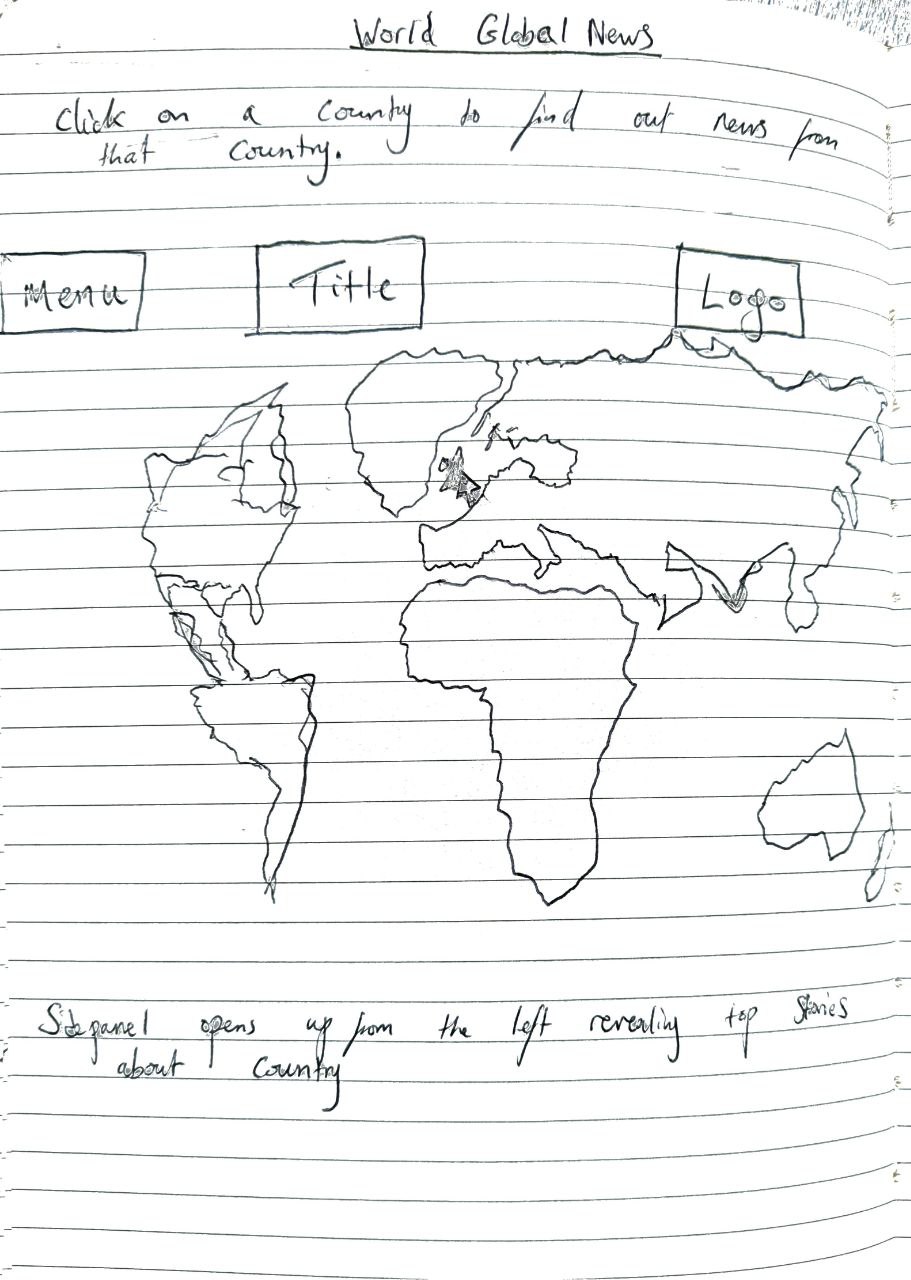 World Global News
Click on a Country to find out news from
that Country.
Menu
Title
Logo
Sidepanel opens up from the left revealing top Stories
about Country